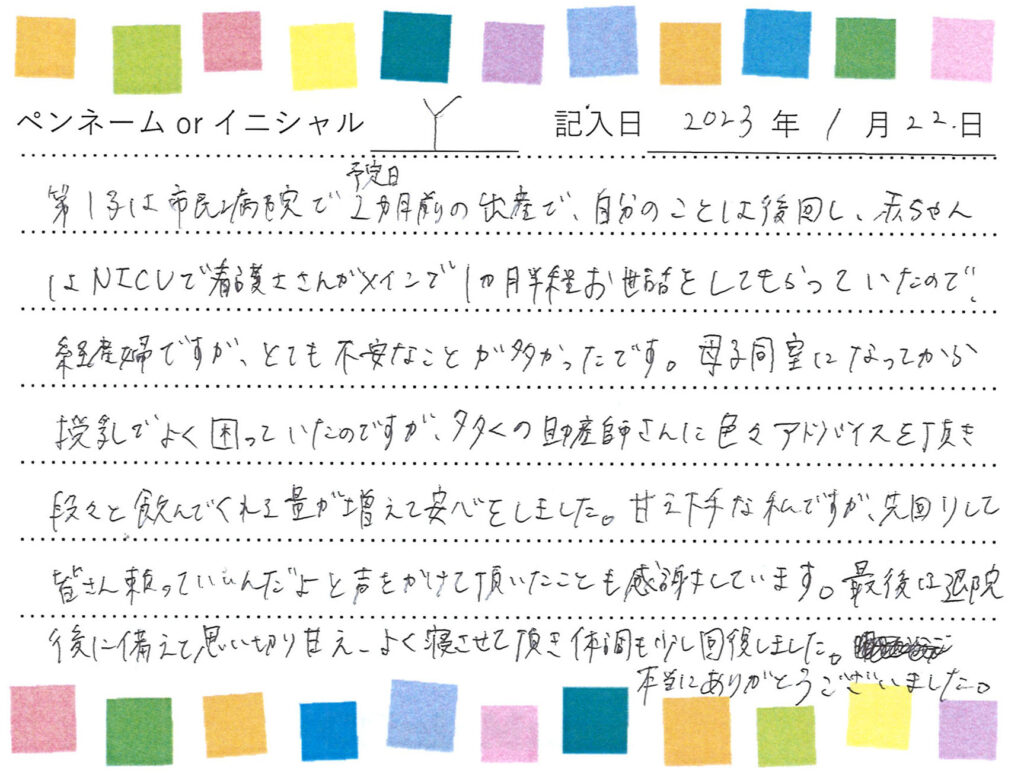 ペンネーム or イニシャル Y 記入日 2023 年 1 月 22 日
予定日
第1子は市民病院で2カ月前の出産で、自分のことは後回し、赤ちゃん
はNICUで看護士さんがメインで1カ月半程お世話をしてもらっていたので、
経産婦ですが、とても不安なことが多かったです。母子同室になってから
授乳でよく困っていたのですが、多くの助産師さんに色々アドバイスを頂き
段々と飲んでくれる量が増えて安心をしました。甘え下手な私ですが、先回りして
皆さん頼っていいんだよと声をかけて頂いたことも感謝しています。最後は退院
後に備えて思い切り甘え、よく寝させて頂き体調も少し回復しました。
本当にありがとうございました。